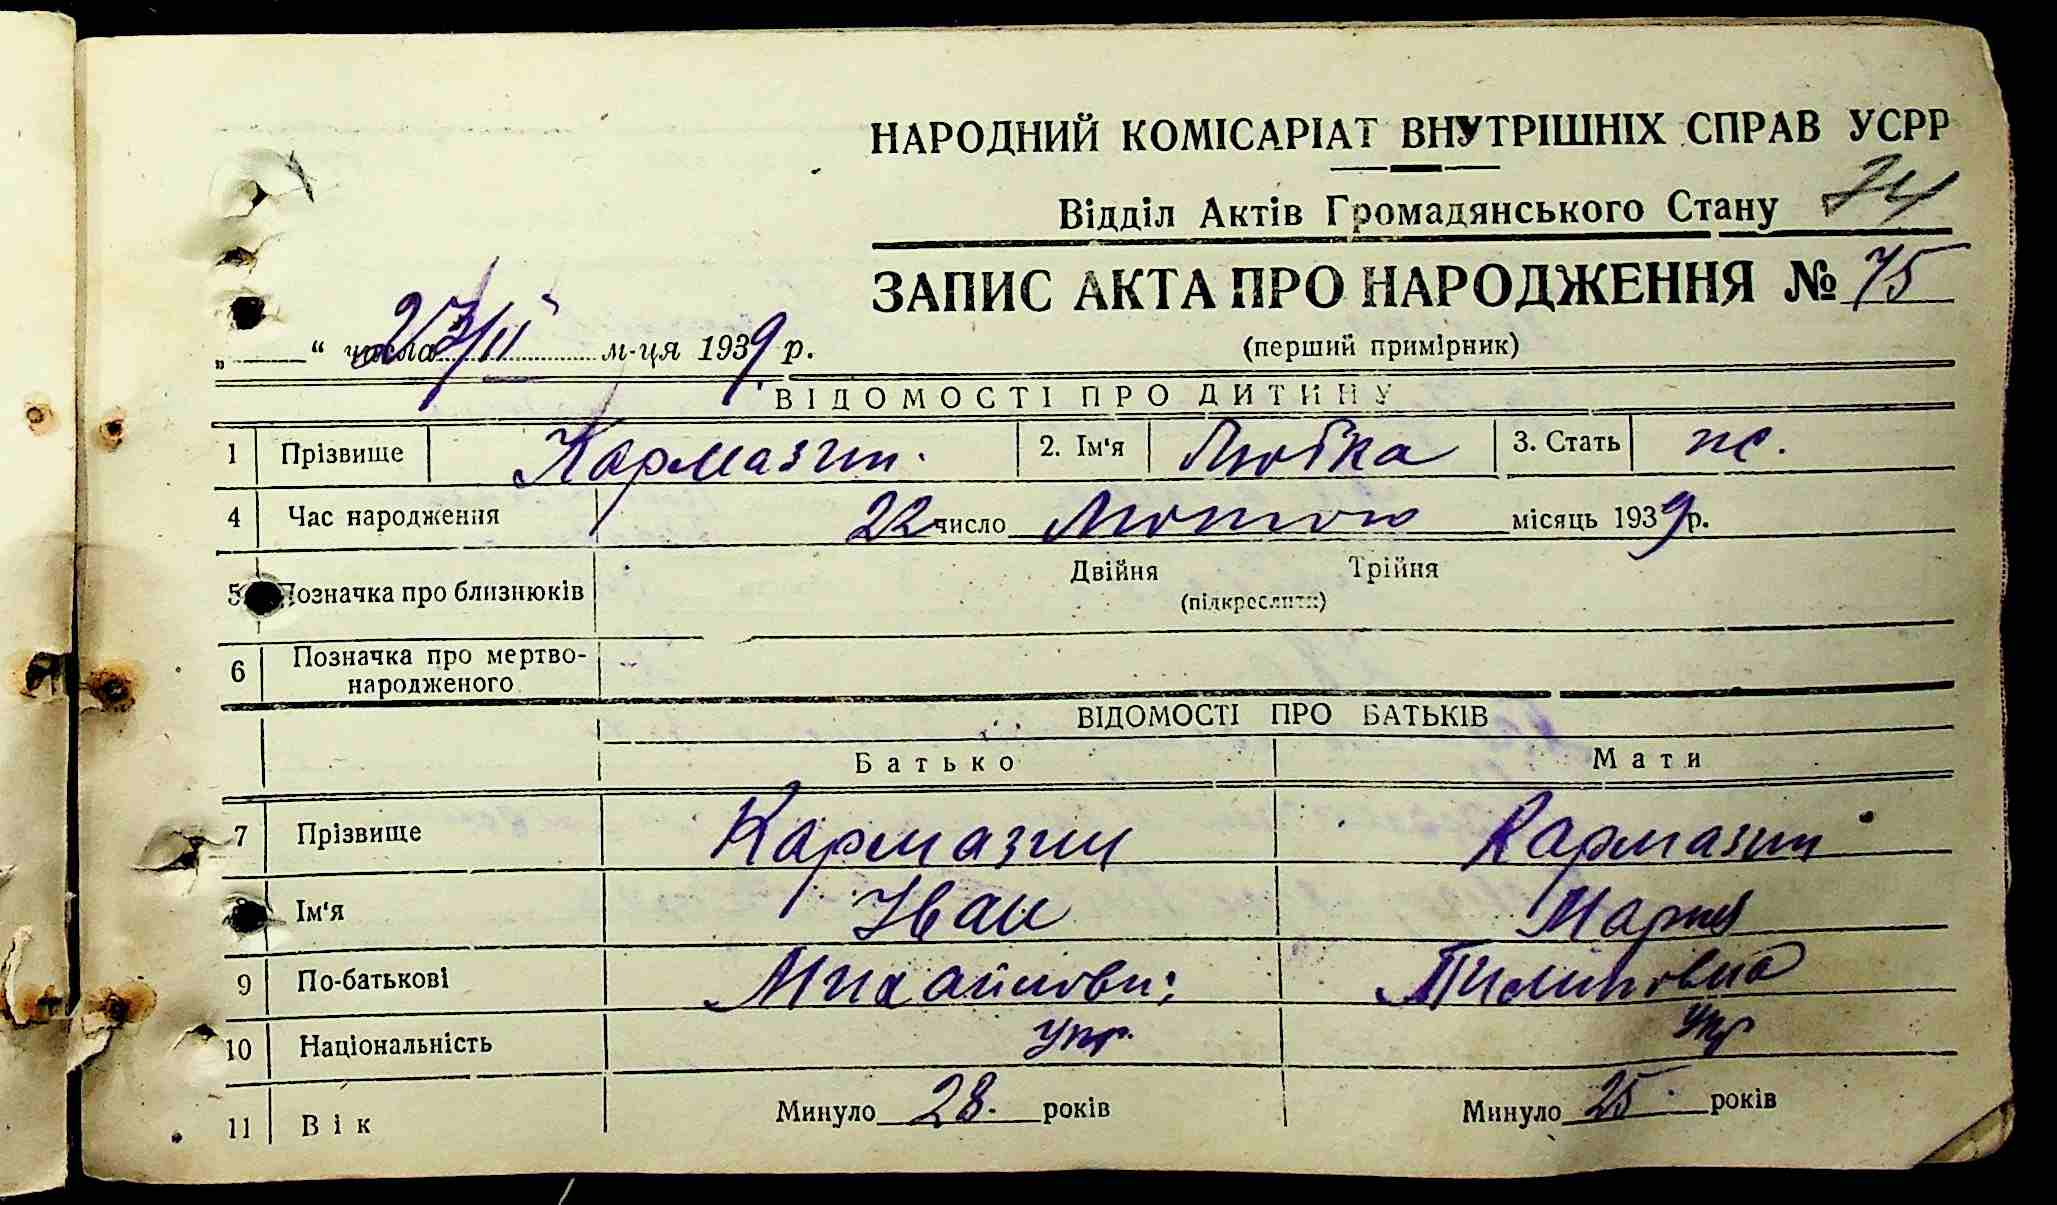 НАРОДНИЙ КОМІСАРІАТ ВНУТРІШНІХ СПРАВ УСРР
Відділ Актів Громадянського Стану 74
ЗАПИС АКТА ПРО НАРОДЖЕННЯ № 75
„ “ числа 27/II м-ця 1939 р.
(перший примірник)
ВІДОМОСТІ ПРО ДИТИНУ
1 Прізвище Кармазин. 2. Ім'я Любка 3. Стать ж.
4 Час народження 22 число Лютого місяць 1939 р.
5 Позначка про близнюків Двійня Трійня
(підкреслити)
6 Позначка про мертво-
народженого
ВІДОМОСТІ ПРО БАТЬКІВ
Батько Мати
7 Прізвище Кармазин Кармазин
Ім'я Іван Мария
9 По-батькові Михайлови Пилиповна
10 Національність укр. укр
11 Вік Минуло 28. років Минуло 25 років